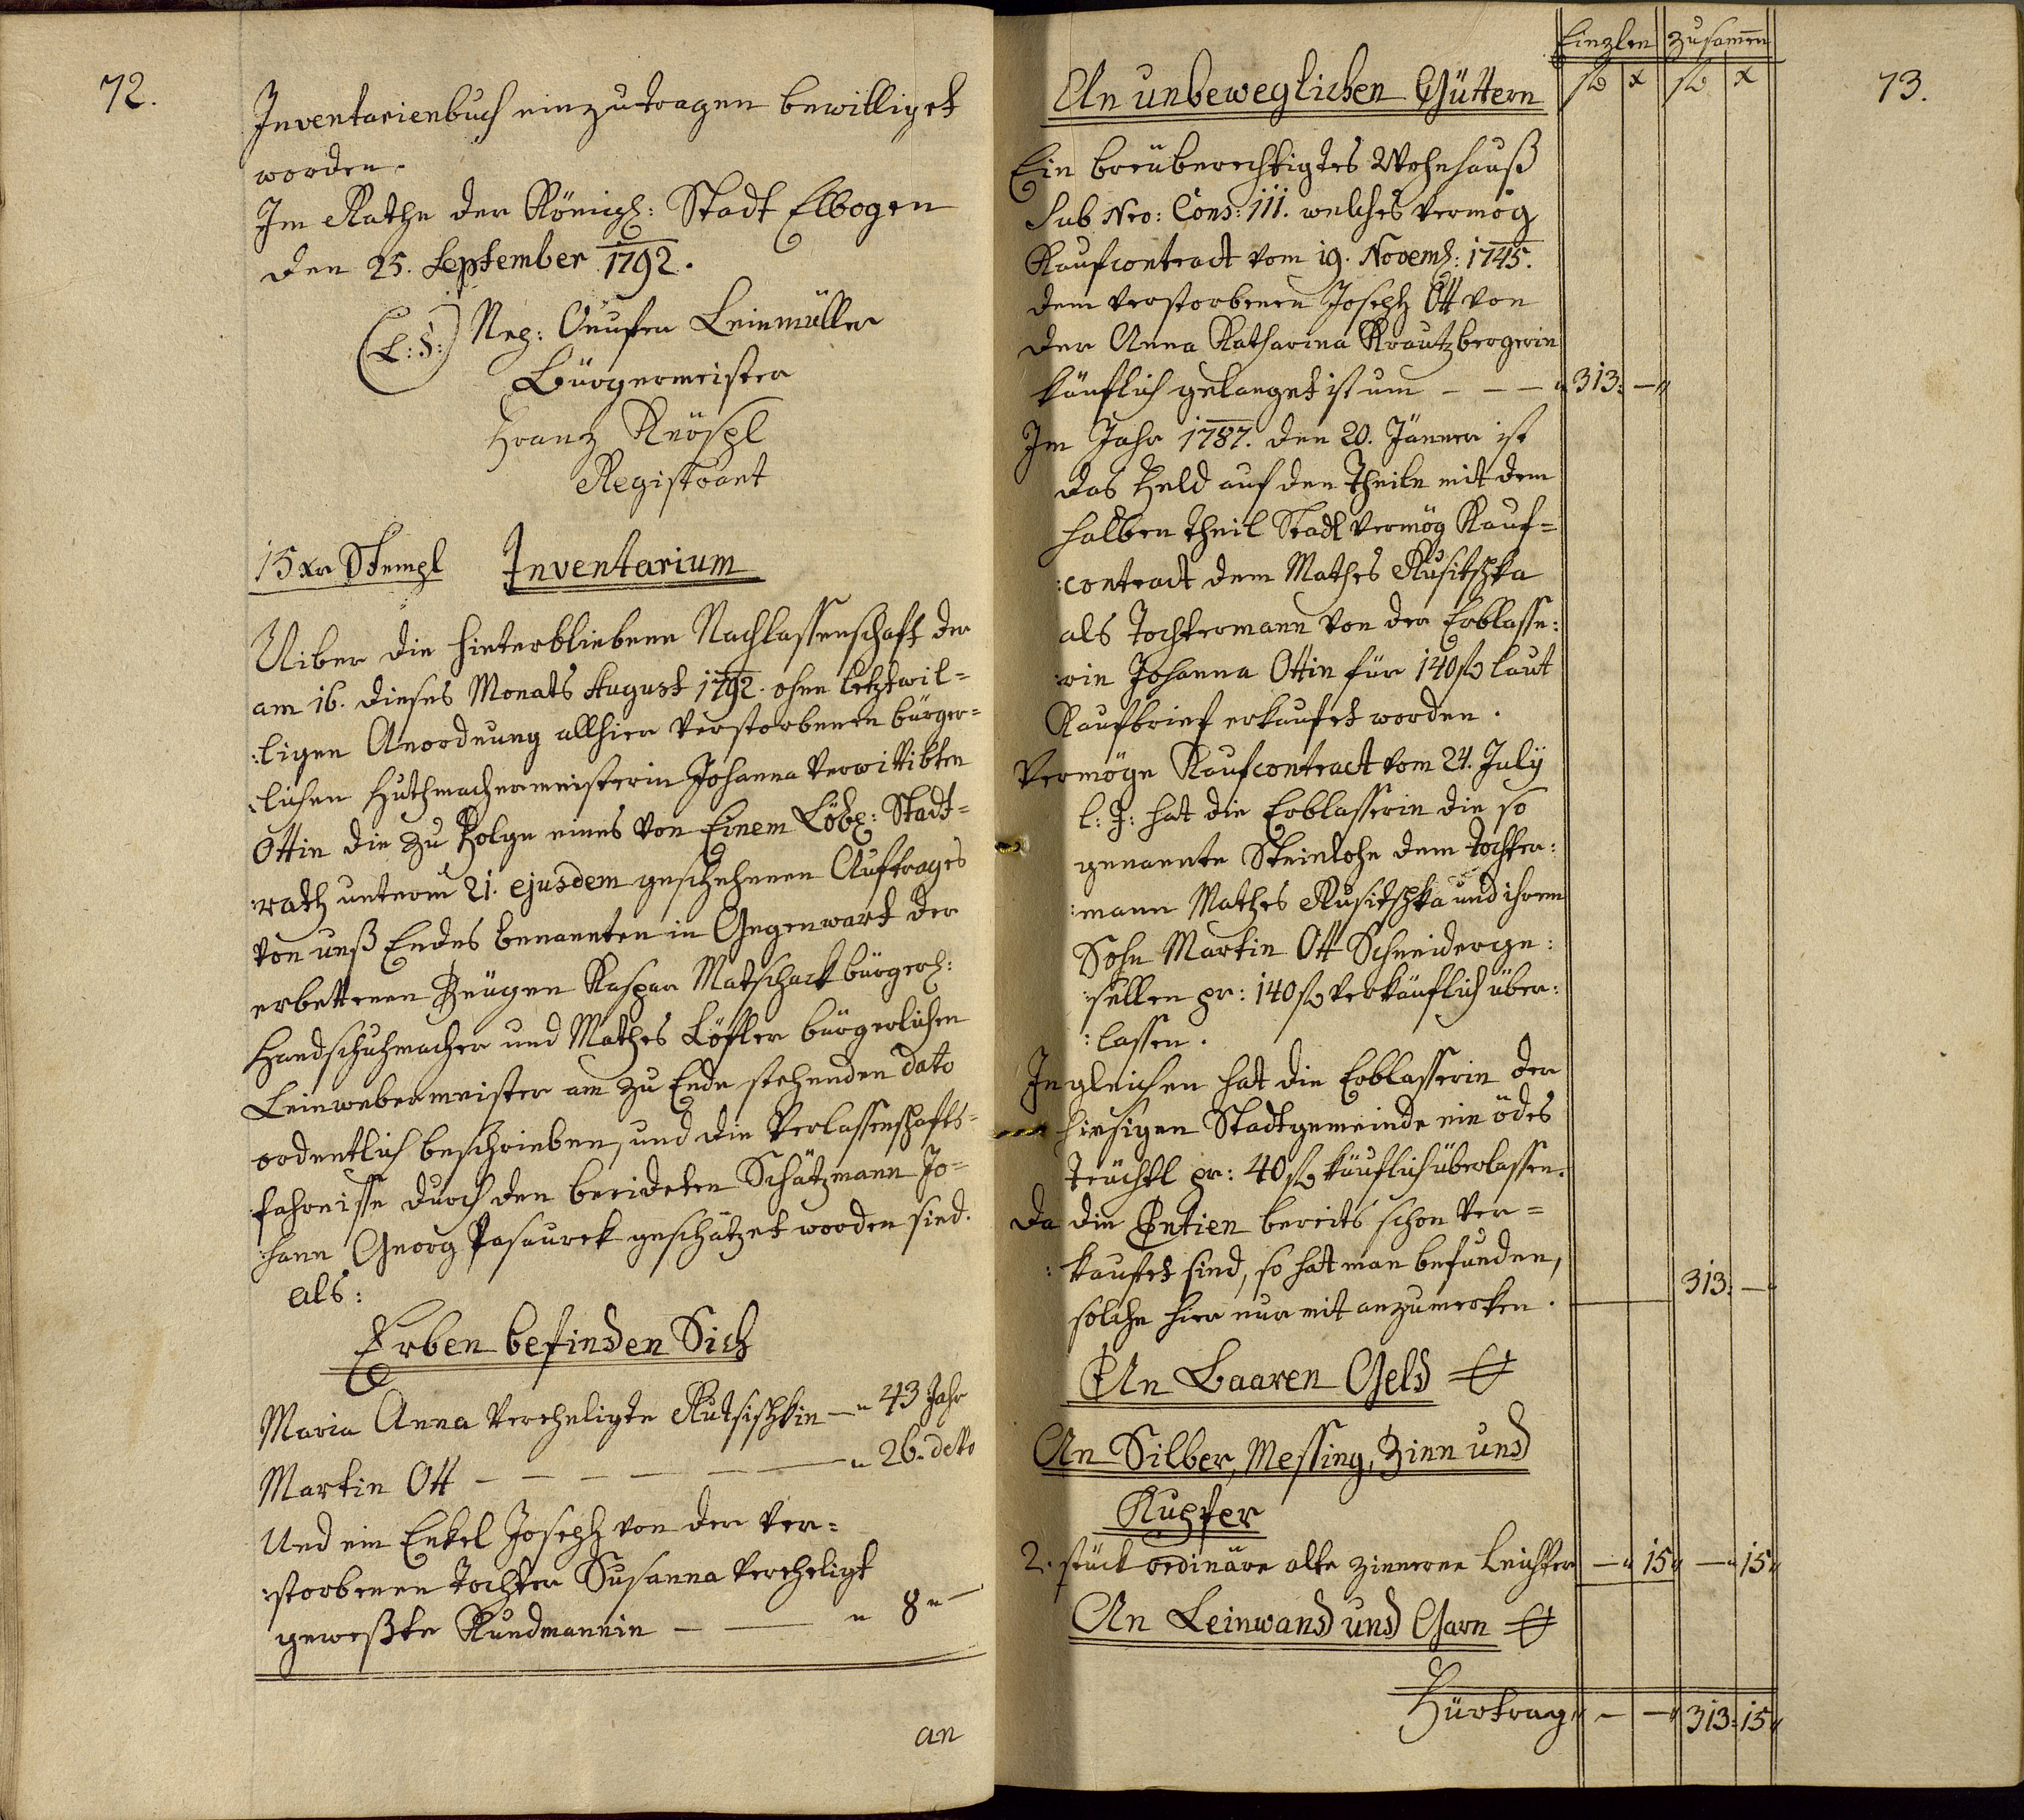 72.
Inventarienbuch einzutragen bewilliget
worden.
Im Rathe der Königl: Stadt Elbogen
den 25. September 1792.
(L:S:) Leinmüller
Bürgermeister
Franz Knöspl
Registrant
15 xr Stempl Inventarium
Uiber die hinterbliebene Nachlassenschaft der
am 16. dieses Monats August 1792. ohne letztwil=
:ligen Anordnung allhier verstorbenen bürger=
:lichen Huthmachermeisterin Johanna verwittibten
Ottin die zu Folge eines von Einem Löbl: Stadt=
:rath unterm 21. ejusdem geschehenen Auftrages
von unß Endes benannten in Gegenwart der
erbettenen Zeügen Kaspar Matschack bürgerl:
Handschuhmacher und Mathes Löfler bürgerlichen
Leinwebermeister am zu Ende stehenden dato
ordentlich beschrieben, und die Verlassenschafts=
fahrnisse durch den beeideten Schätzmann Jo=
:hann Georg Pasaurek geschätzet worden sind.
als:
Erben befinden Sich
Maria Anna verehligte Rutsischkin — " 43 Jahr
Martin Ott — — — — — — " 26. detto
Und ein Enkel Joseph von der ver=
:storbenen Tochter Susanna verehligt
geweßte Kundmannin — — " 8 " —
an
73.
Einzlen zusamen
fl x fl x
An unbeweglichen Güttern
Ein breüberechtigtes Wohnhauß
Sub Nro: Cons: 111. welches vermög
Kaufcontract vom 19. Novemb: 1745.
dem verstorbenen Joseph Ott von
der Anna Katharina Krautzbergerin
käuflich gelanget ist um — — — " 313: — "
Im Jahr 1787. den 20. Jänner ist
das Feld auf den Theile mit dem
halben Theil Stadl vermög Kauf=
:contract dem Mathes Rusitschka
als Tochtermann von der Erblasse:
:rin Johanna Ottin für 140 fl laut
Kaufbrief erkaufet worden.
Vermöge Kaufcontract vom 24. July
l: J: hat die Erblasserin die so
genannte Steinlohe dem Tochter:
:mann Mathes Rusitschka und ihrem
Sohn Martin Ott Schneiderge:
:sellen pr: 140 fl verkäuflich über:
:lassen.
Ingleichen hat die Erblasserin der
hiesigen Stadtgemeinde ein ödes
Teüchtl pr: 40 fl käuflich überlassen.
Da die Entien bereits schon ver=
:kaufet sind, so hat man befunden,
solche hier nur mit anzumerken. 313: —
An Baaren Geld
An Silber, Messing, Zinn und
Kupfer
2. stück ordinäre alte zinnerne Leichter — " 15 " — " 15 "
An Leinwand und Garn
Fürtrag " — — " 313: 15 "